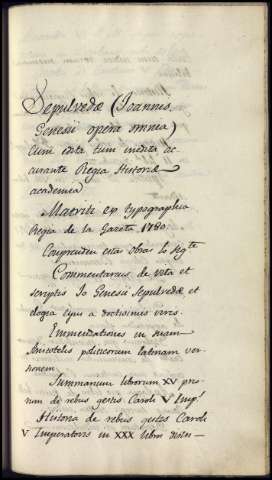 Sepulvedæ (Joannis,
Genesii opera omnia)
cum edita tum inedita ac
curante Regia Historiæ
academia
Matriti ex typographia
Regia de la Gazeta 1780.
Comprenden estas obras lo sigte
Commentarius de vita et
scriptis Jo Genesii Sepulvedæ et
elogia ejus a doctissimis viris.
Enmendationes in suam
Aristotelis politicorum latinam ver
sionem.
Summarium librorum XV prio
rum de rebus gestis Caroli V Imp!
Historia de rebus gestis Caroli
V Imperatoris in XXX libros distri—